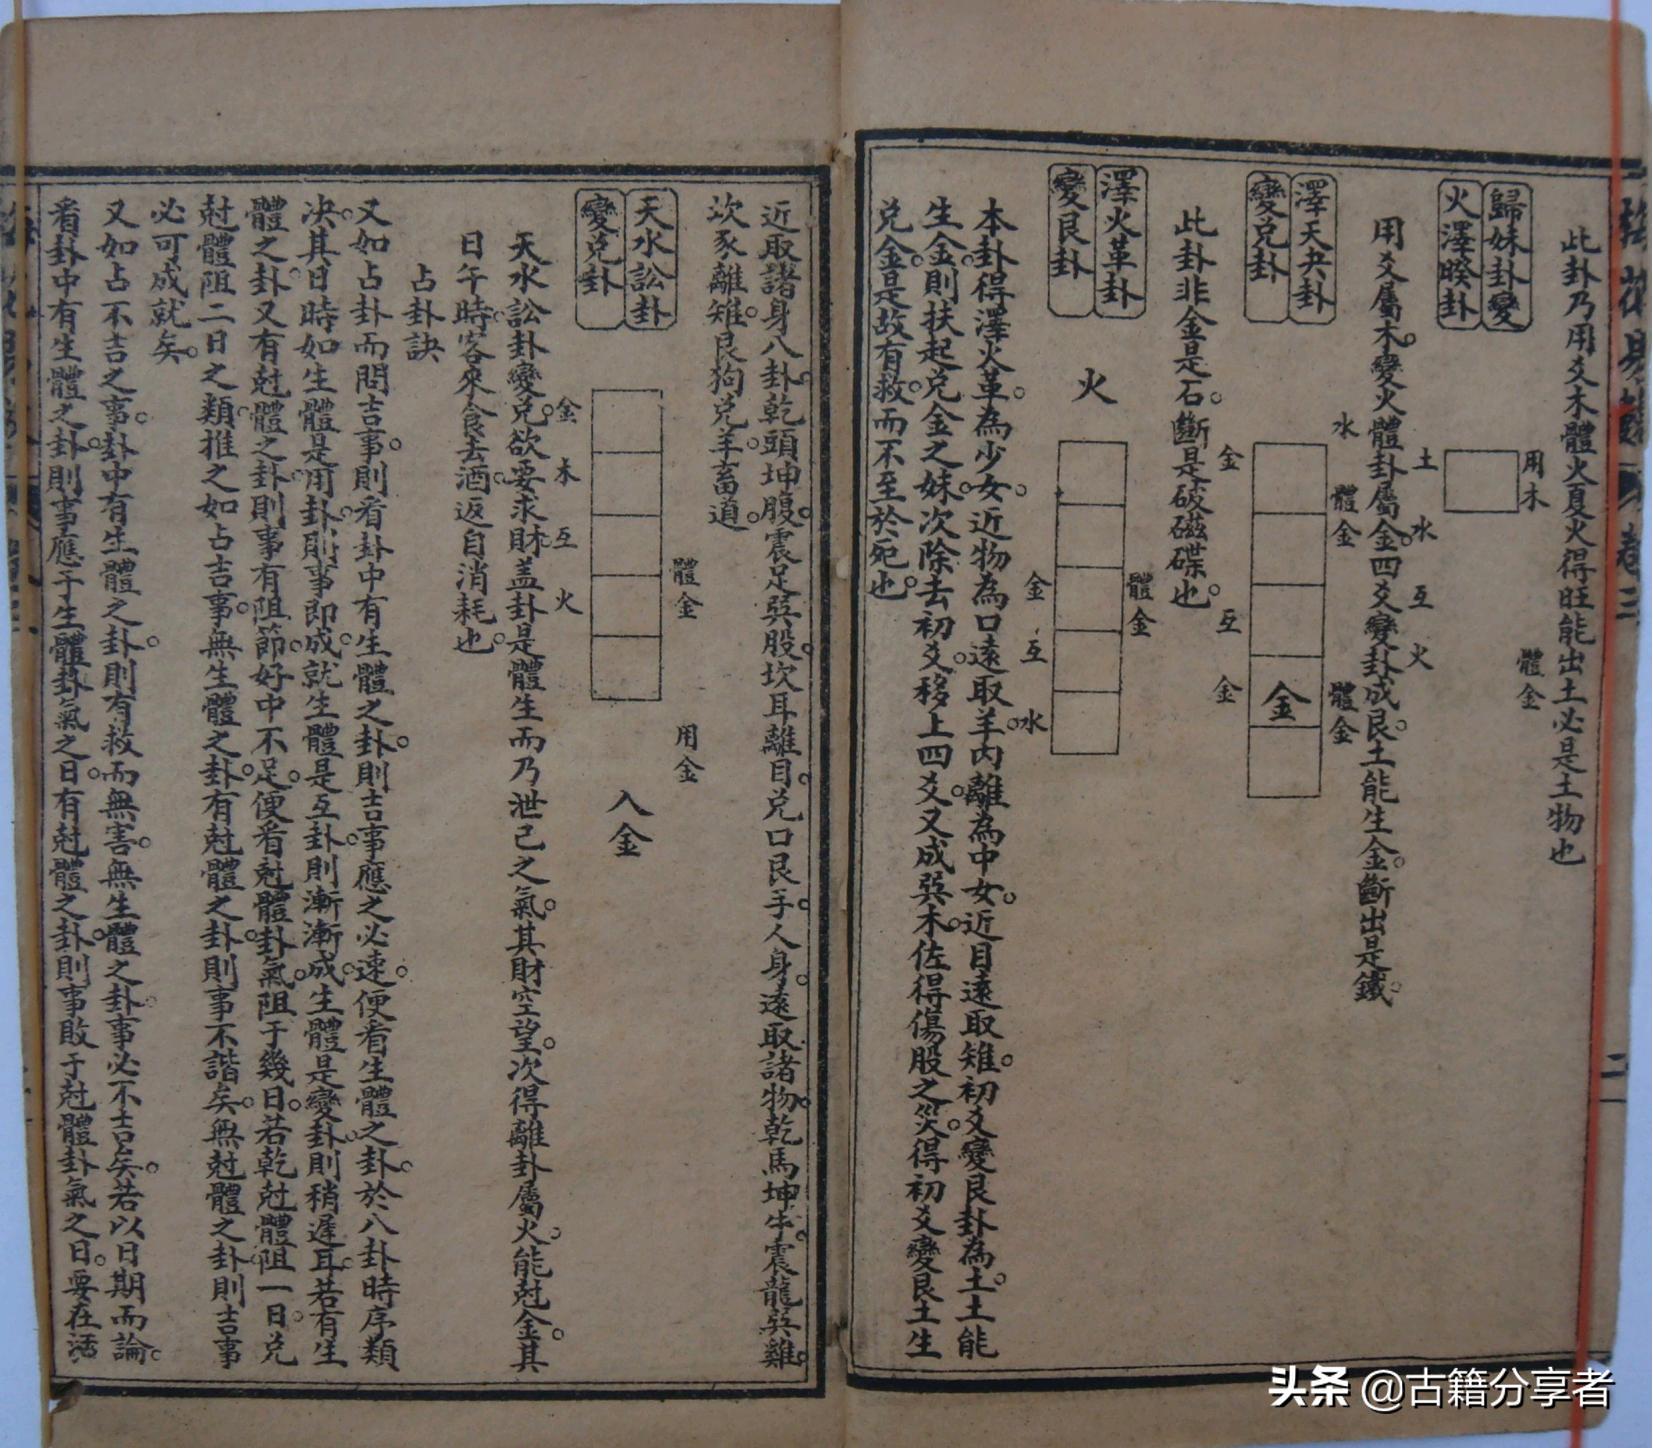 此卦乃用爻木體火夏火得旺能出土必是土物也
歸妹卦變
火澤睽卦
用木
體金
用爻屬木。變火體卦屬金。四爻變卦成艮。土能生金。斷出是鐵。
澤天夬卦
變兌卦
土 水 互 火
水 體金 體金
金
金 互 金
此卦非金是石。斷是破磁碟也。
澤火革卦
變艮卦
火
體金
金 互 水
本卦得澤火革。為少女。近物為口。遠取羊。內離為中女。近目遠取雉。初爻變艮卦為土。土能
生金。金則扶起兌金之妹。次除去初爻。移上四爻。又成巽木。佐得傷股之災。得初爻變艮土生
兌金。是故有救。而不至於死也。
近取諸身八卦。乾頭坤腹。震足巽股。坎耳離目。兌口艮手。人身。遠取諸物。乾馬坤牛。震龍巽雞。
坎豕離雉。艮狗兌羊。畜道。
天水訟卦
變兌卦
體金
用金
入金
金 木 互 火
天水訟卦變兌。欲要求財。蓋卦是體生。而乃泄己之氣。其財空望。次得離卦屬火。能尅金。其
日午時。客來食去酒。返自消耗也。
占卦訣
又如占卦而問吉事。則看卦中有生體之卦。則吉事應之必速。便看生體之卦。於八卦時序類
決。其日時如生體是用卦。則事即成就。生體是互卦。則漸漸成。生體是變卦。則稍遲耳。若有生
體之卦。又有尅體之卦。則事有阻節。好中不足。便看尅體卦氣。阻于幾日。若乾尅體。阻一日。兌
尅體阻二日之類。推之如占吉事。無生體之卦。有尅體之卦。則事不諧矣。無尅體之卦則吉事
必可成就矣。
又如占不吉之事。卦中有生體之卦。則有救而無害。無生體之卦。事必不吉矣。若以日期而論。
看卦中有生體之卦。則事應于生體卦氣之日。有尅體之卦。則事敗于尅體卦氣之日。要在活
頭条 @古籍分享者